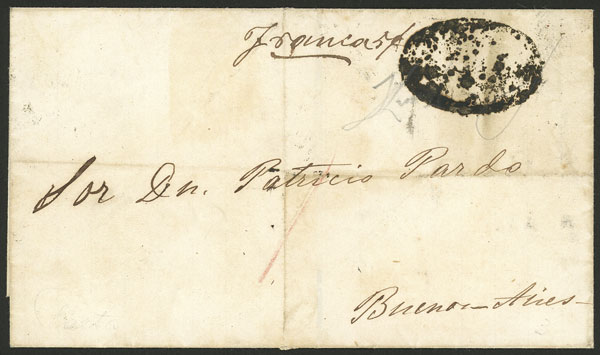 Franca
Sor Dn. Patricio Pardo
Buenos-Aires-